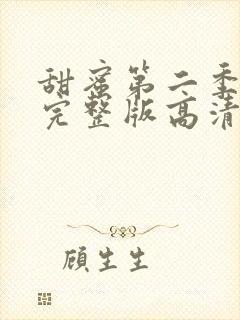 甜蜜第二季
完整版高清
顾生生